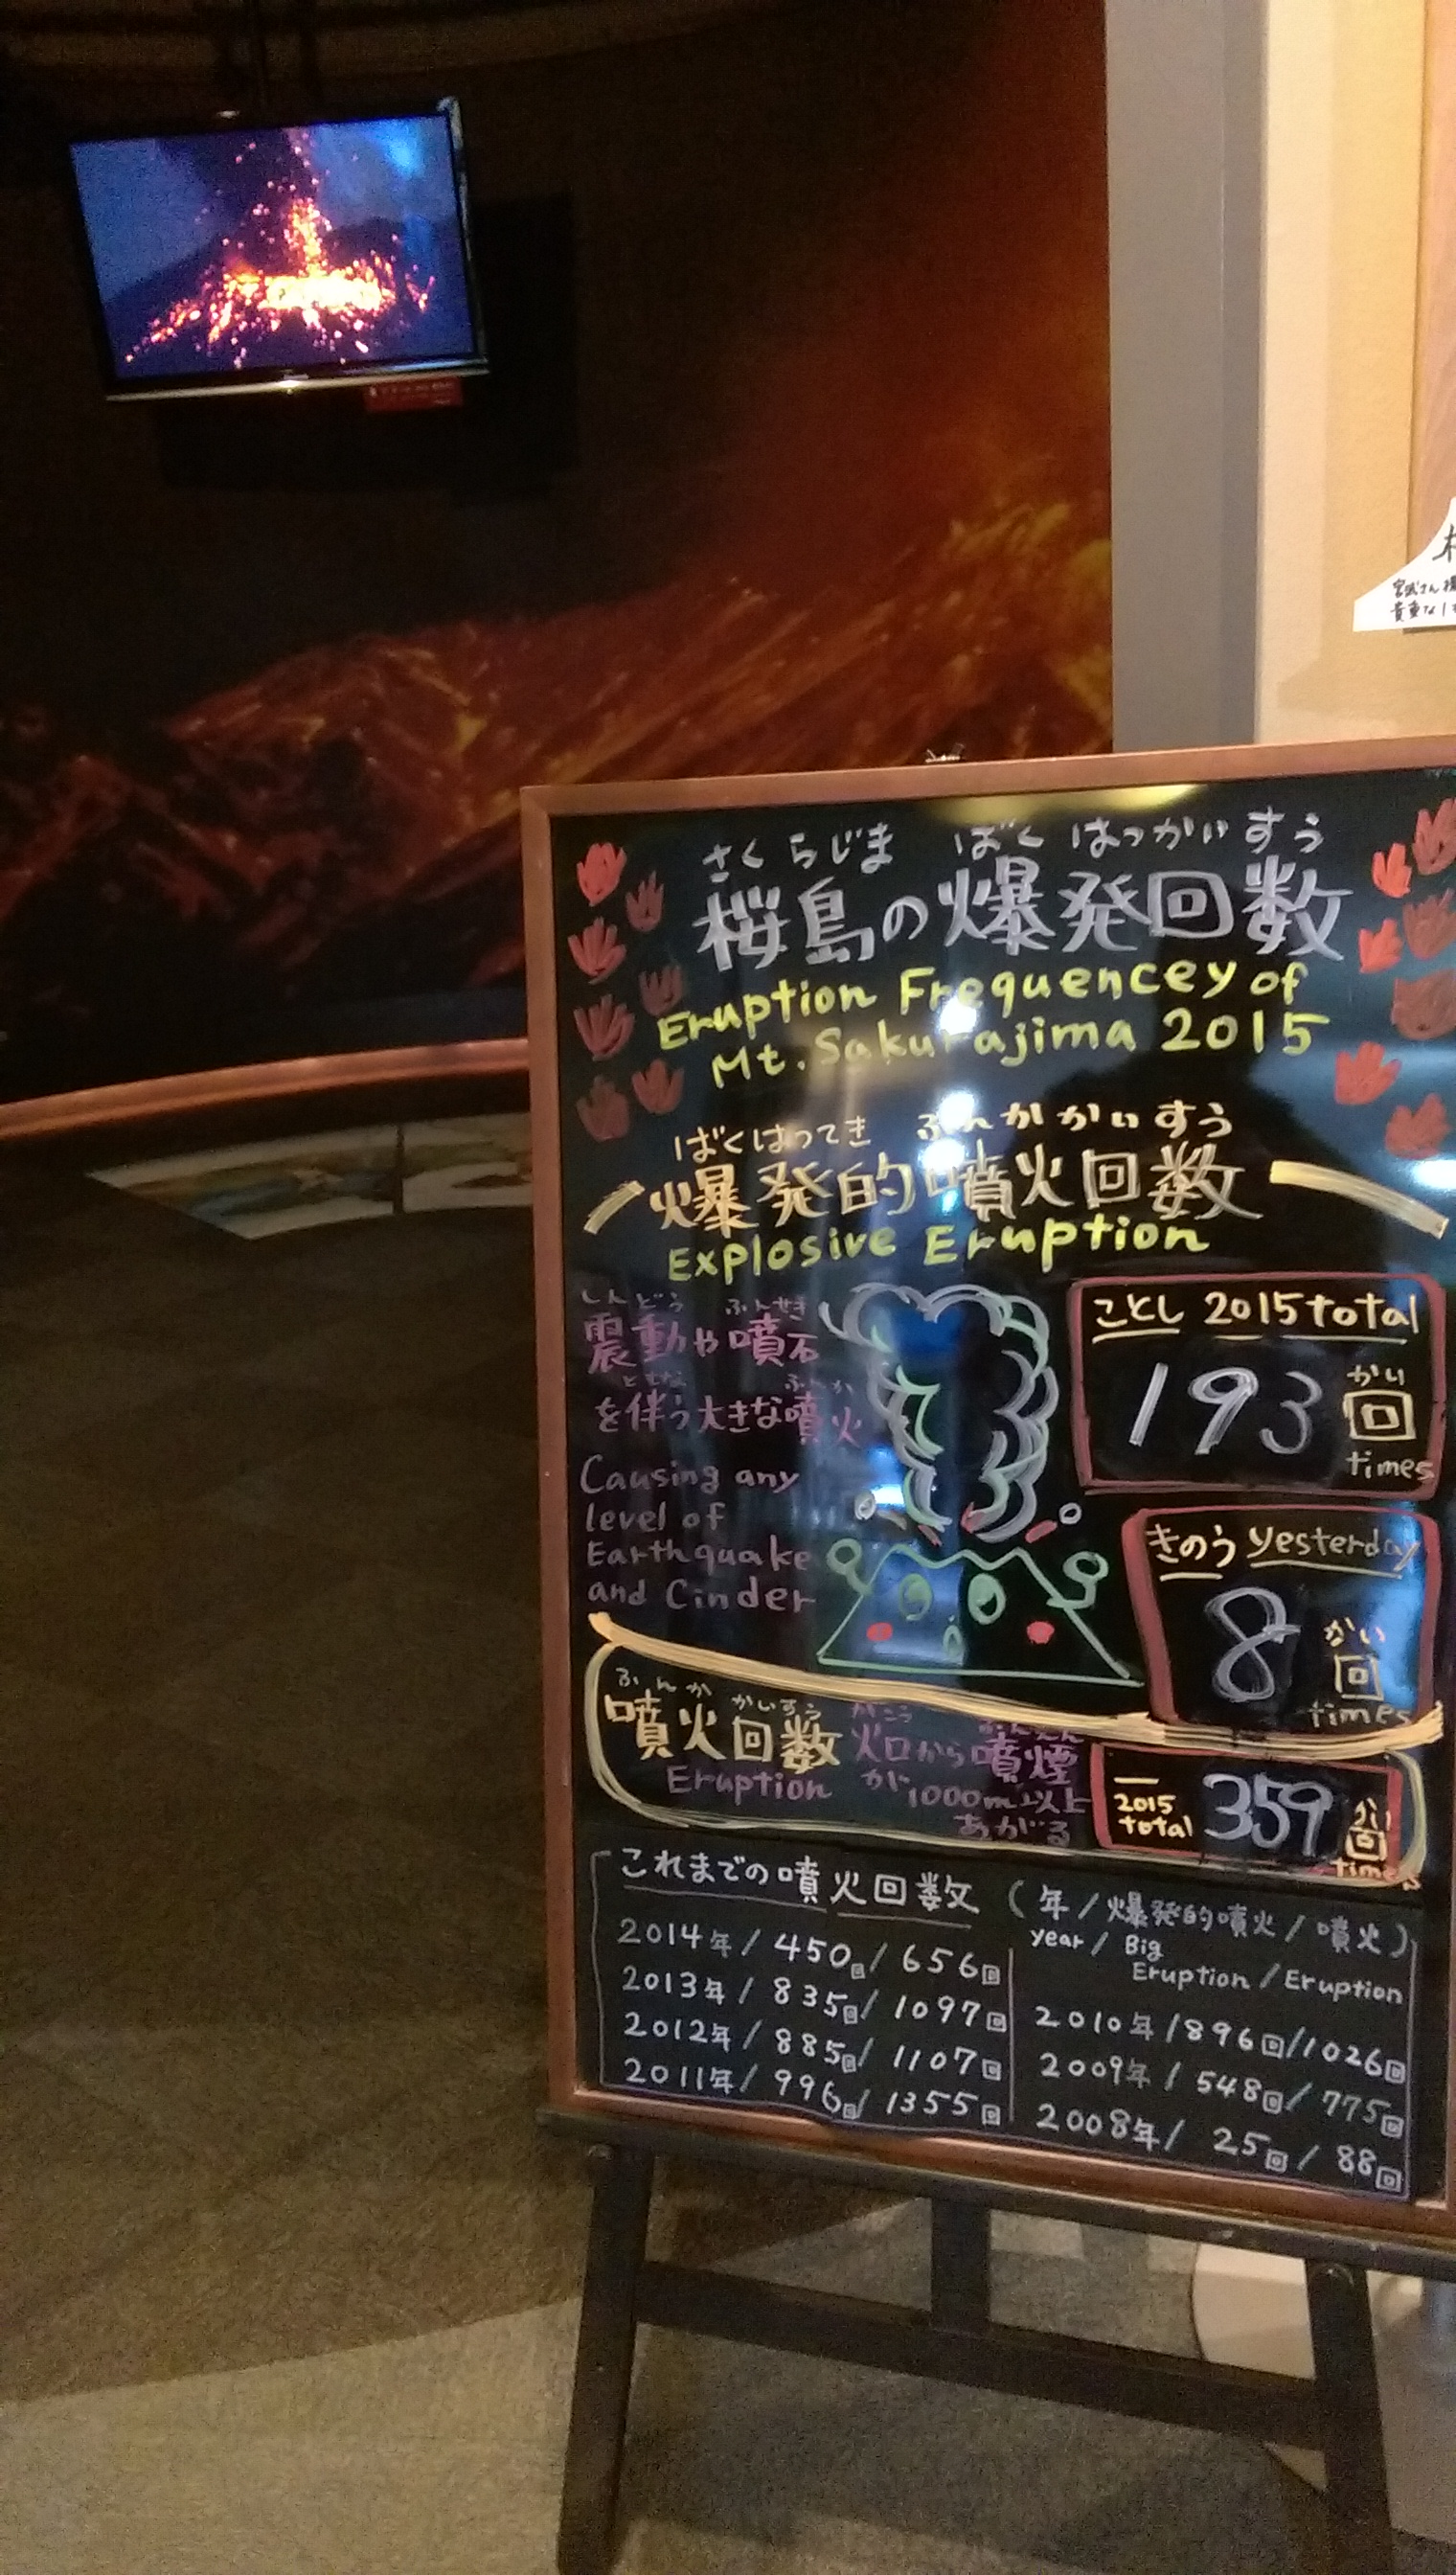 さくらじま ばくはっかいすう
桜島の爆発回数
Eruption Frequencey of
Mt. Sakurajima 2015
ばくはつてき ふんかかいすう
爆発的噴火回数
Explosive Eruption
しんどう ふんせき
震動や噴石
ともな ふんか
を伴う大きな噴火
Causing any
level of
Earthquake
and Cinder
ことし 2015 total
193 かい
回
times
きのう yesterday
8 かい
回
times
ふんか かいすう
噴火回数
Eruption
かこう ふんえん
火口から噴煙
が1000m以上
あがる
2015
total
359 かい
回
times
これまでの噴火回数 (年/爆発的噴火/噴火)
year/Big
Eruption/Eruption
2014年/450回/656回
2013年/835回/1097回
2012年/885回/1107回
2011年/996回/1355回
2010年/896回/1026回
2009年/548回/775回
2008年/25回/88回